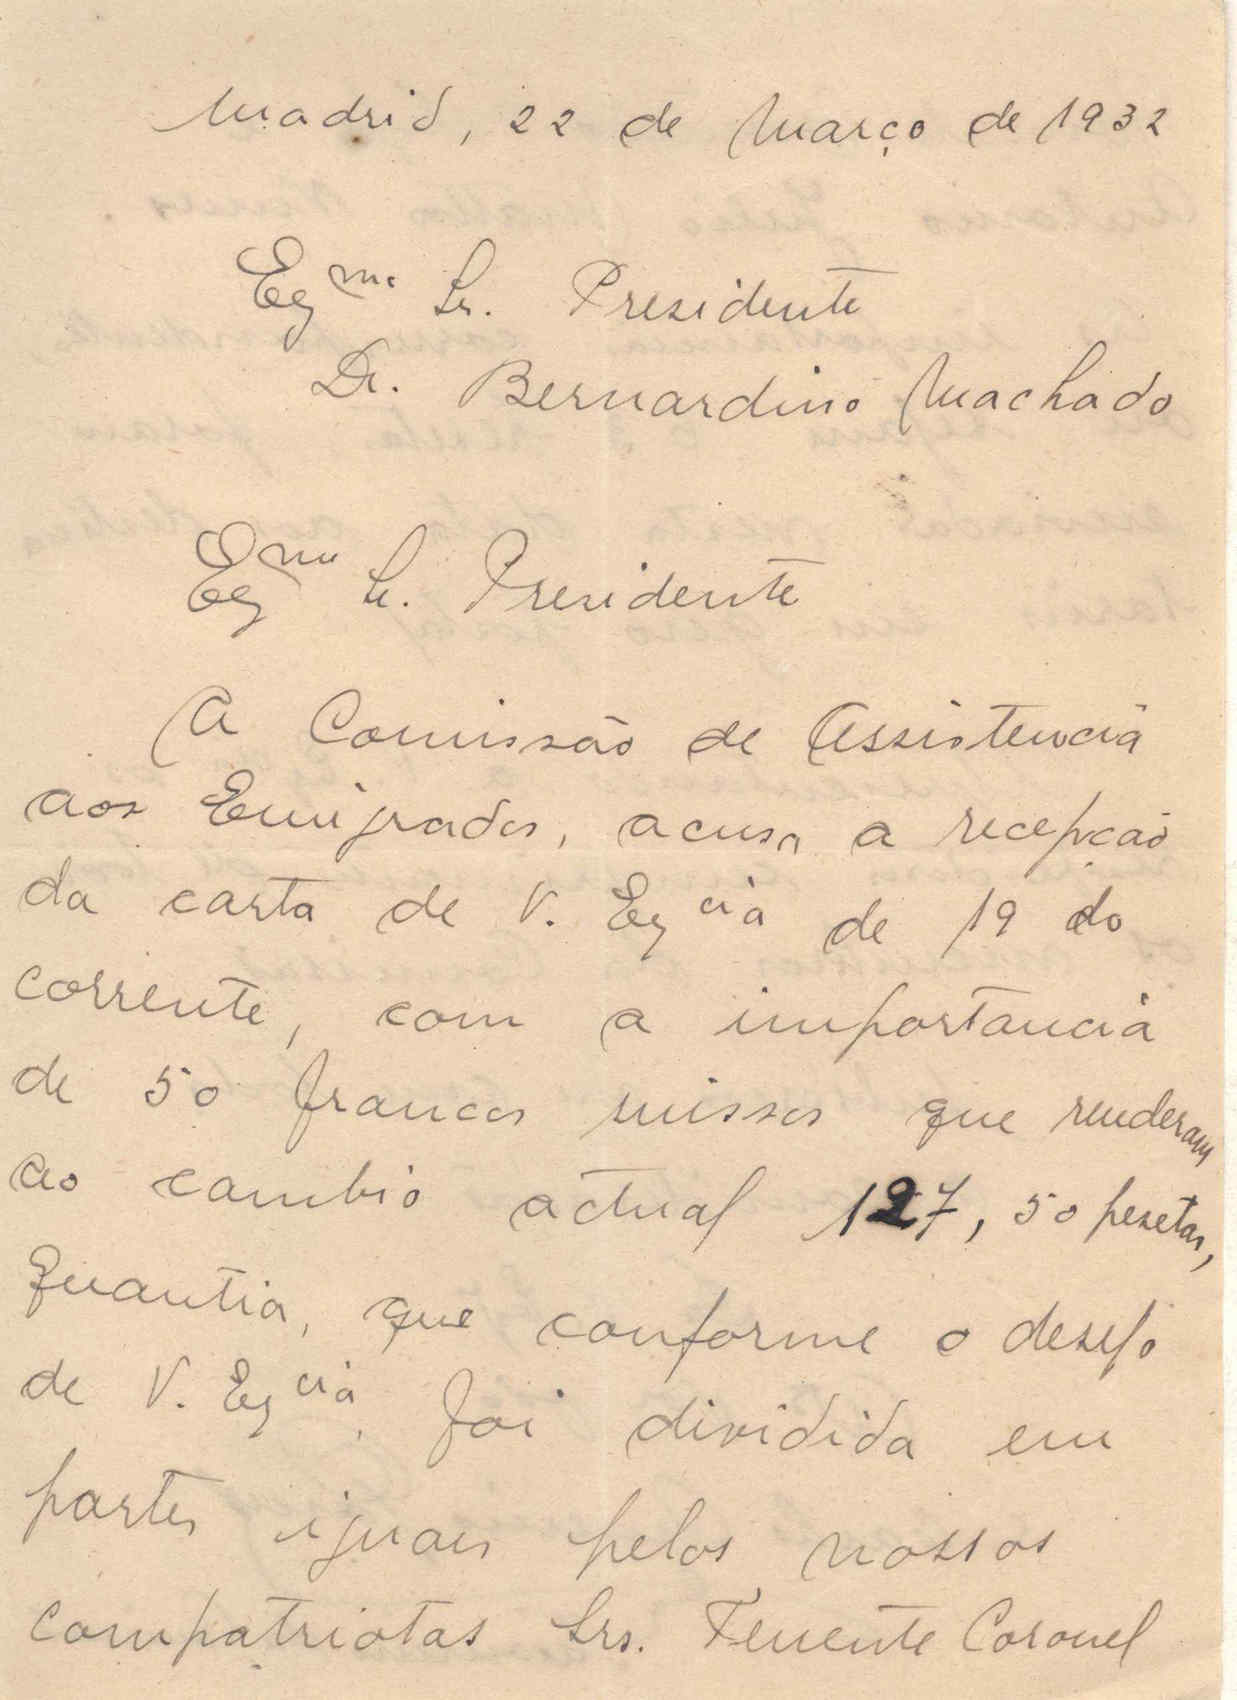 Madrid, 22 de Março de 1932
Exmo Sr. Presidente
Dr. Bernardino Machado
Exmo Sr. Presidente
A Comissão de Assistencia
aos Emigrados, acusa a recepção
da carta de V. Excia de 19 do
corrente, com a importancia
de 50 francos suissos que renderam
ao cambio actual 127,50 pesetas,
quantia, que conforme o desejo
de V. Excia, foi dividida em
partes iguaes pelos nossos
compatriotas Srs. Tenente Coronel